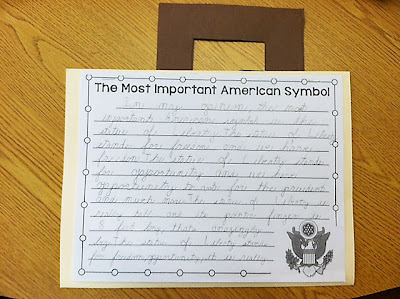 The Most Important American Symbol
In my opinion the most
important American symbol is the
statue of liberty. the statue of liberty
stands for freedom and we have
freedom. The statue of liberty stands
for opportunity and we have
opportunity to vote for the president
and much more. The statue of liberty is
really tall and its pointer finger is
8 feet big, thats amazingly
big. The statue of liberty stands
for freedom, opportunity. It is really